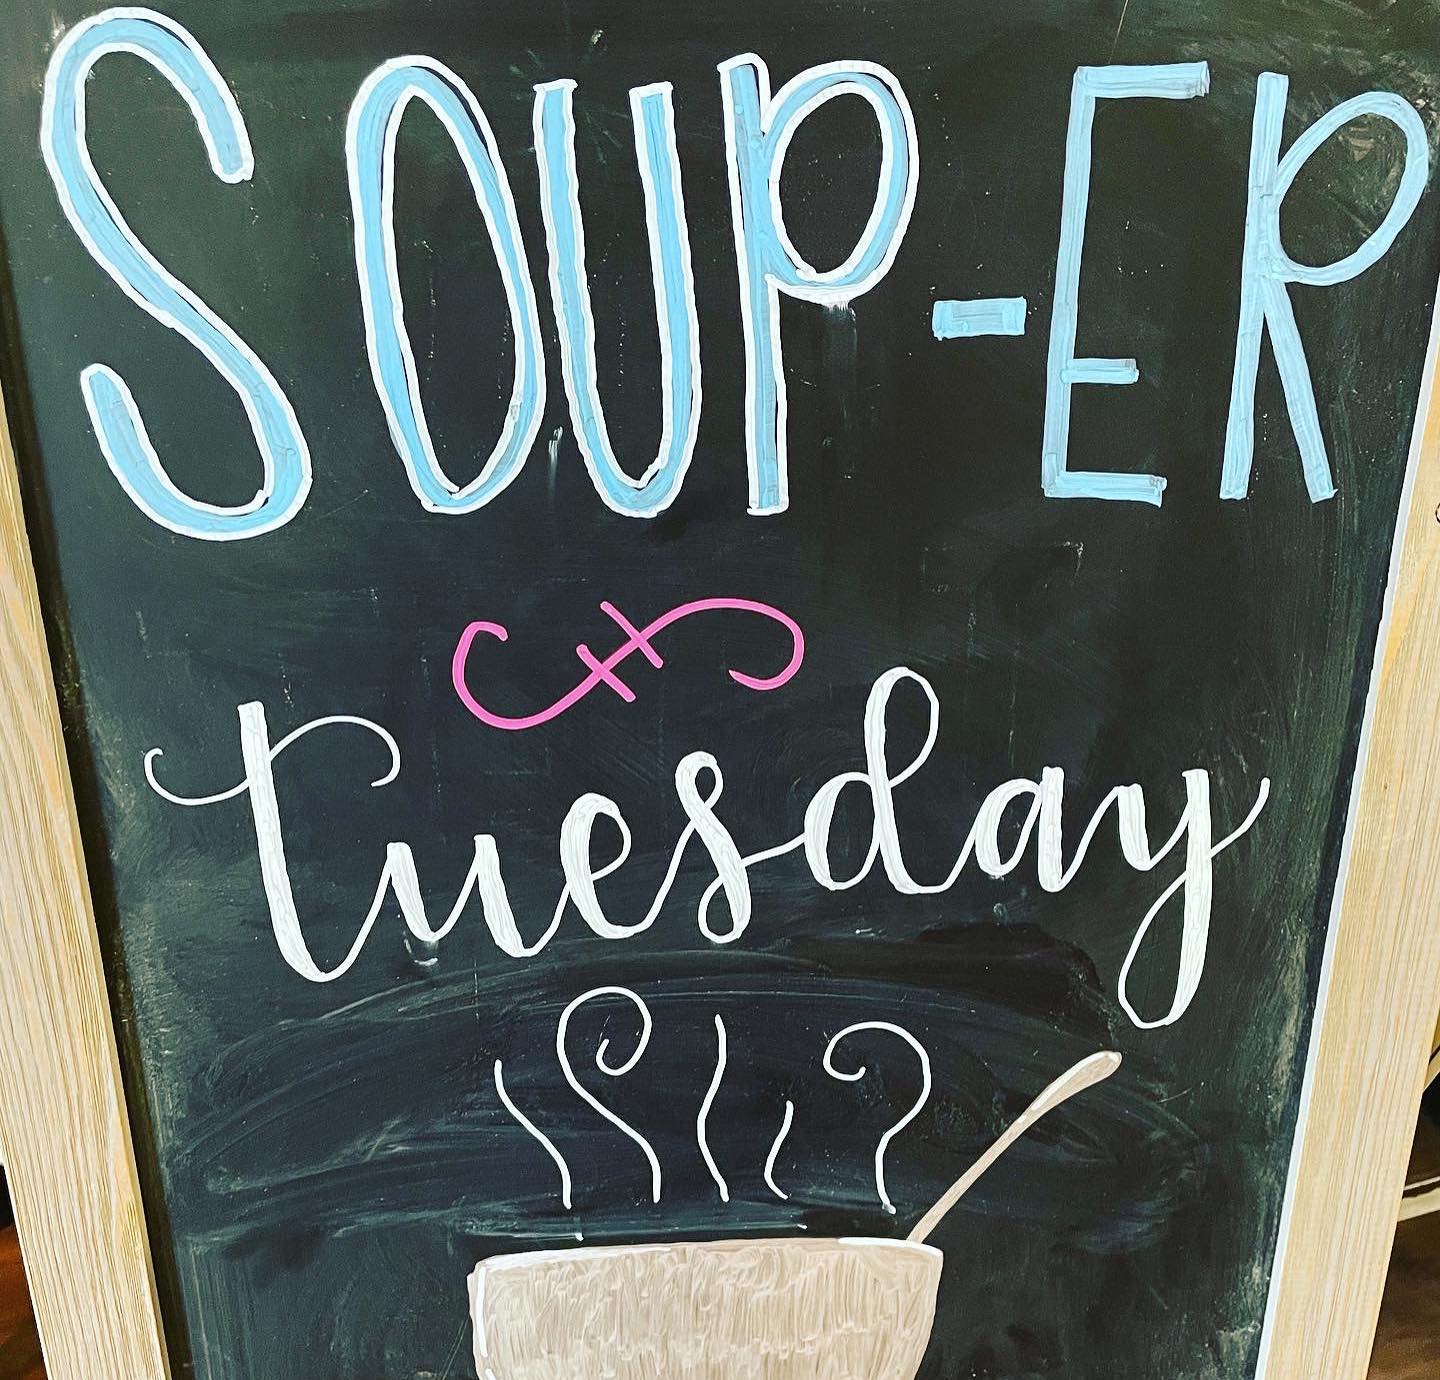 SOUP-ER
tuesday